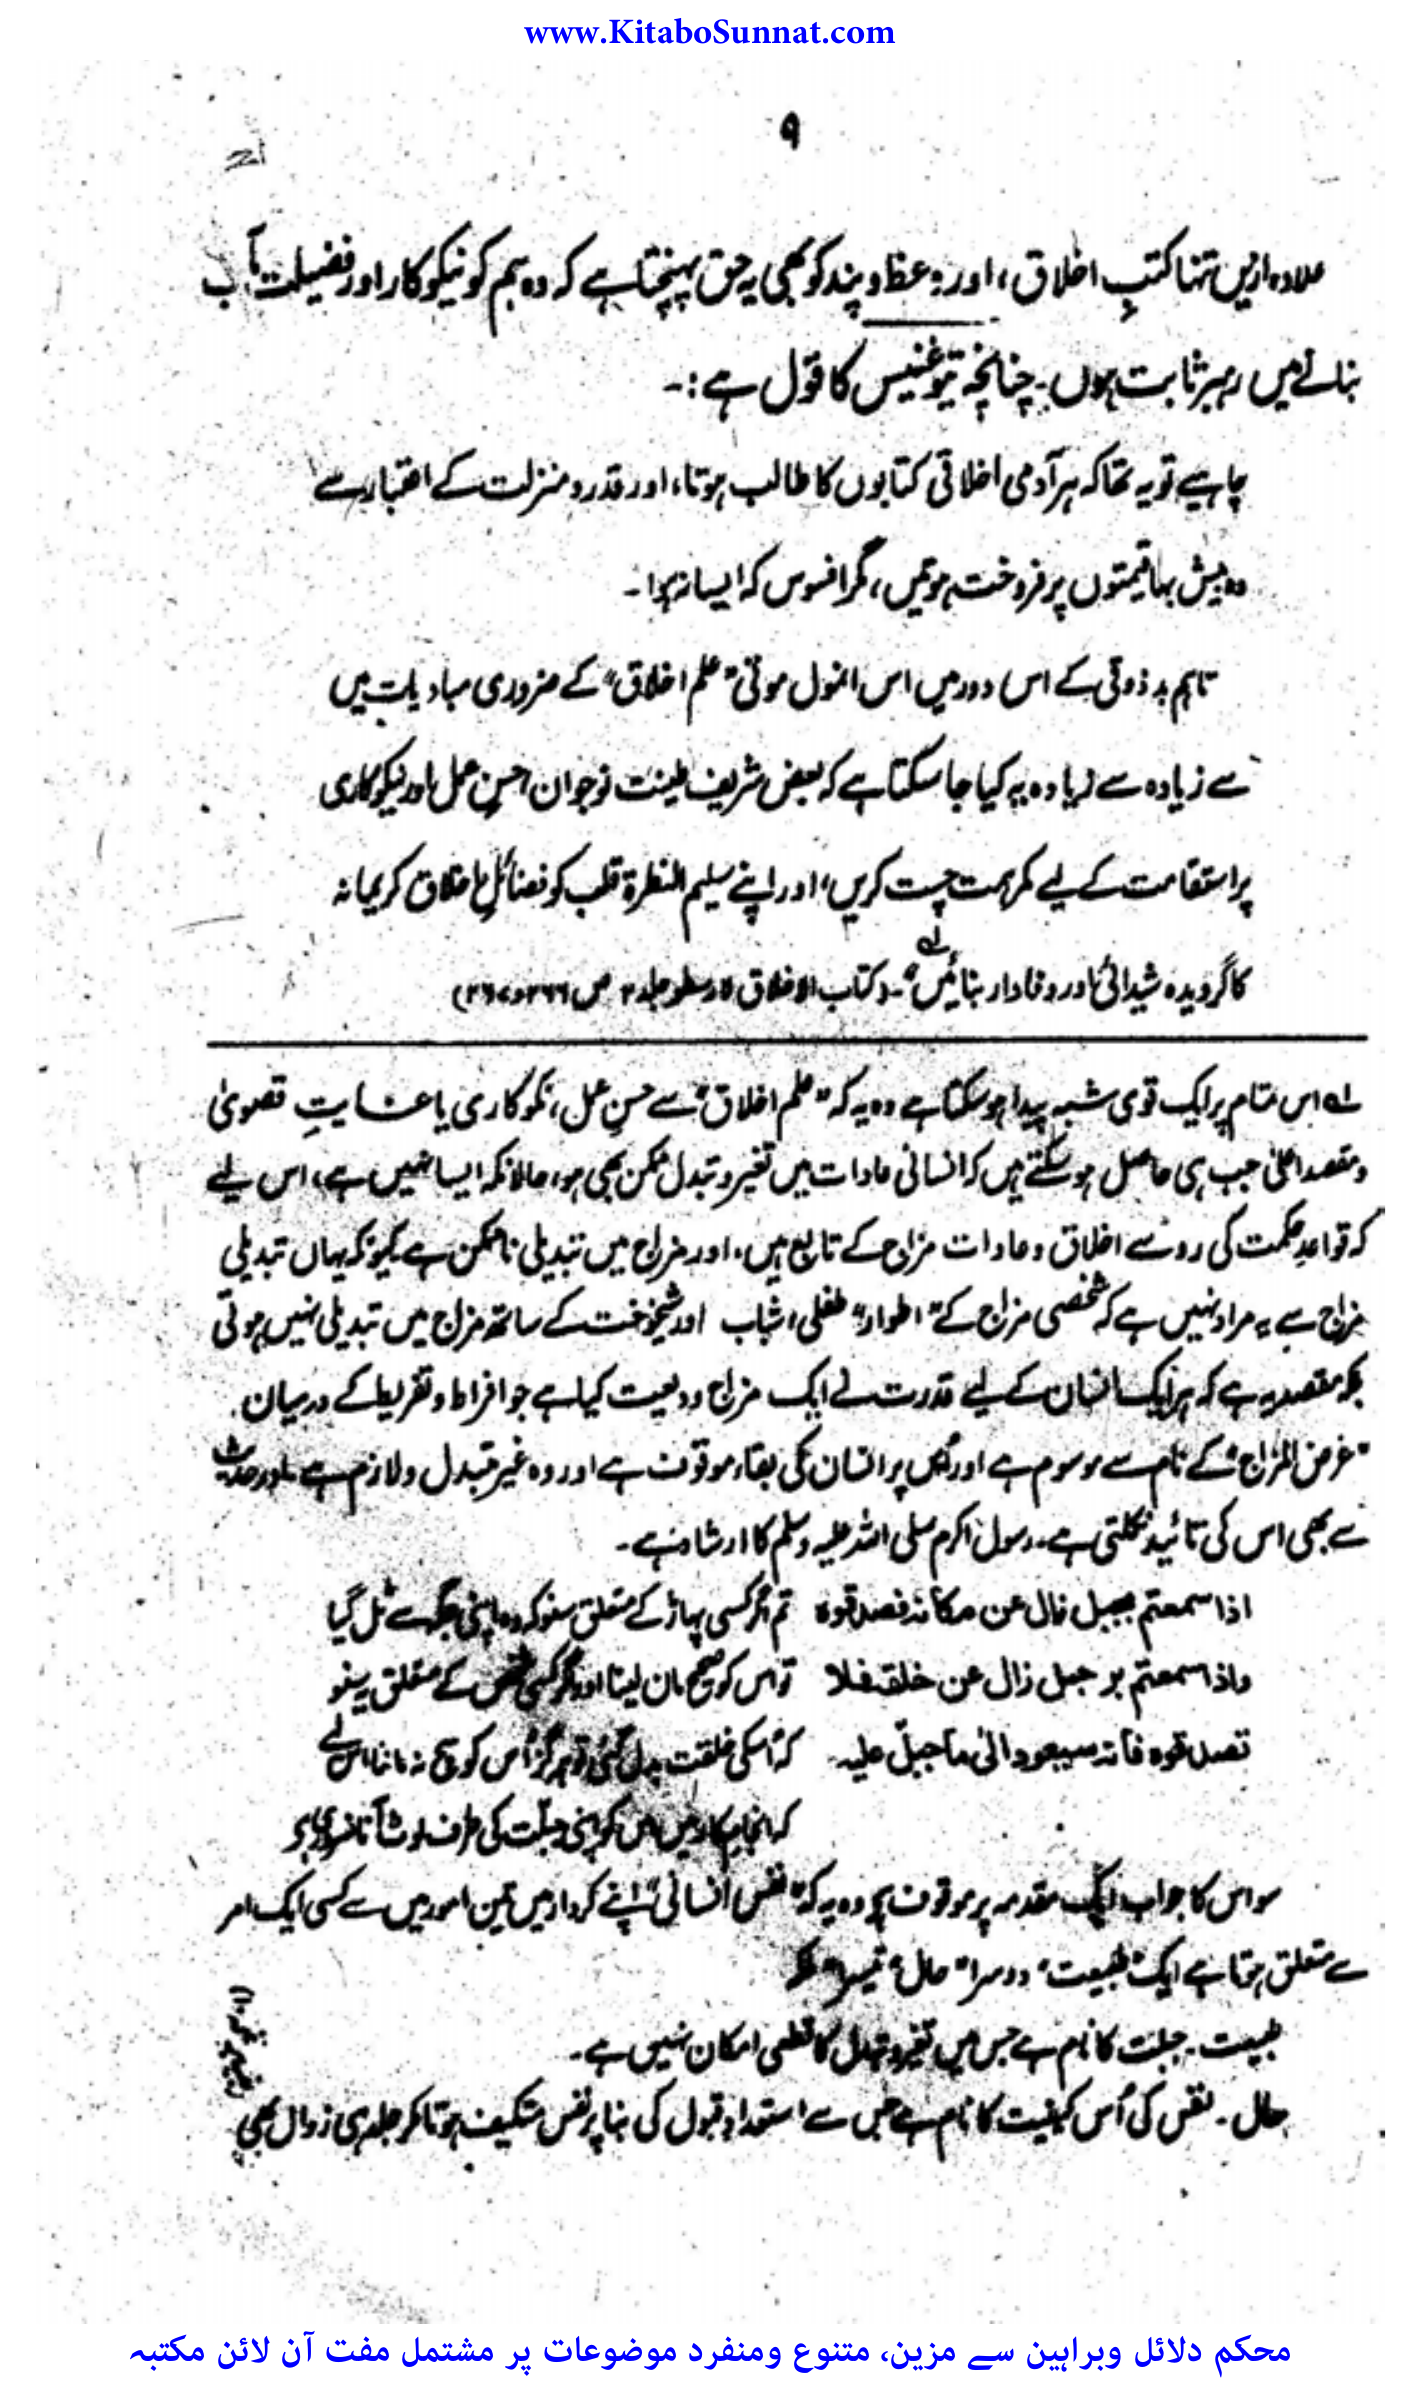 www.KitaboSunnat.com
۹
علاوہ ازیں تنہا کتبِ اخلاق، اور وعظ و پند کو بھی یہ حق پہنچتا ہے کہ وہ ہم کو نیکوکار اور فضیلت مآب
بنانے میں رہبر ثابت ہوں۔ چنانچہ تیوغنیس کا قول ہے:۔
چاہیے تو یہ تھا کہ ہر آدمی اخلاقی کتابوں کا طالب ہوتا، اور قدر و منزلت کے اعتبار سے
وہ بیش بہا قیمتوں پر فروخت ہوتیں، مگر افسوس کہ ایسا نہ ہوا۔
تاہم بدذوقی کے اس دور میں اس انمول موتی "علم اخلاق" کے ضروری مبادیات میں
سے زیادہ سے زیادہ یہ کیا جا سکتا ہے کہ بعض شریف طینت نوجوان، حسنِ عمل اور نیکوکاری
پر استقامت کے لیے کمر ہمت چست کریں، اور اپنے سلیم الفطرۃ قلب کو فضائلِ اخلاق کریمانہ
کا گرویدہ شیدائی اور وفادار بنائیں"۔ لہ (کتاب الاخلاق لارسطو جلد ۲ ص ۳۶۶ و ۳۶۷)
لہ اس مقام پر ایک قوی شبہ پیدا ہو سکتا ہے وہ یہ کہ "علم اخلاق" سے حسنِ عمل، نکوکاری یا غایتِ قصویٰ
و مقصد اعلیٰ جب ہی حاصل ہو سکتے ہیں کہ انسانی عادات میں تغیر و تبدل ممکن بھی ہو، حالانکہ ایسا نہیں ہے، اس لیے
کہ قواعدِ حکمت کی رو سے اخلاق و عادات مزاج کے تابع ہیں، اور مزاج میں تبدیلی ناممکن ہے کیونکہ یہاں تبدیلی
مزاج سے یہ مراد نہیں ہے کہ شخصی مزاج کے "اطوار" طفلی، شباب اور شیخوخت کے ساتھ مزاج میں تبدیلی نہیں ہوتی
بلکہ مقصد یہ ہے کہ ہر ایک انسان کے لیے قدرت نے ایک مزاج ودیعت کیا ہے جو افراط و تفریط کے درمیان
"عرض المزاج" کے نام سے موسوم ہے اور اس پر انسان کی بقاء موقوف ہے اور وہ غیر متبدل و لازم ہے۔ اور حدیث
سے بھی اس کی تائید نکلتی ہے۔ رسول اکرم صلی اللہ علیہ وسلم کا ارشاد ہے۔
اذا سمعتم بجبل زال عن مکانہ فصدقوہ تم اگر کسی پہاڑ کے متعلق سنو کہ وہ اپنی جگہ سے ٹل گیا
واذا سمعتم برجل زال عن خلقہ فلا تو اس کو صحیح مان لینا اور اگر کسی شخص کے متعلق یہ سنو
تصدقوہ فانہ سیعود الیٰ ما جبل علیہ کہ اُسکی خلقت بدل گئی تو ہرگز اُس کو سچ نہ ماننا اس لیے
کہ انجام کار میں اس کو اپنی جبلّت کی طرف لوٹ آنا ضروری ہے
سو اس کا جواب ایک مقدمہ پر موقوف ہے وہ یہ کہ "نفس انسانی" اپنے کردار میں تین امور میں سے کسی ایک امر
سے متعلق ہوتا ہے ایک "طبیعت" دوسرا "حال" تیسرا "ملکہ"
طبیعت۔ جبلت کا نام ہے جس میں تغیر و تبدل کا قطعی امکان نہیں ہے۔
حال۔ نفس کی اُس کیفیت کا نام ہے جس سے استعداد قبول کی بنا پر نفس متکیف ہوتا مگر جلد ہی زوال بھی
محکم دلائل وبراہین سے مزین، متنوع ومنفرد موضوعات پر مشتمل مفت آن لائن مکتبہ